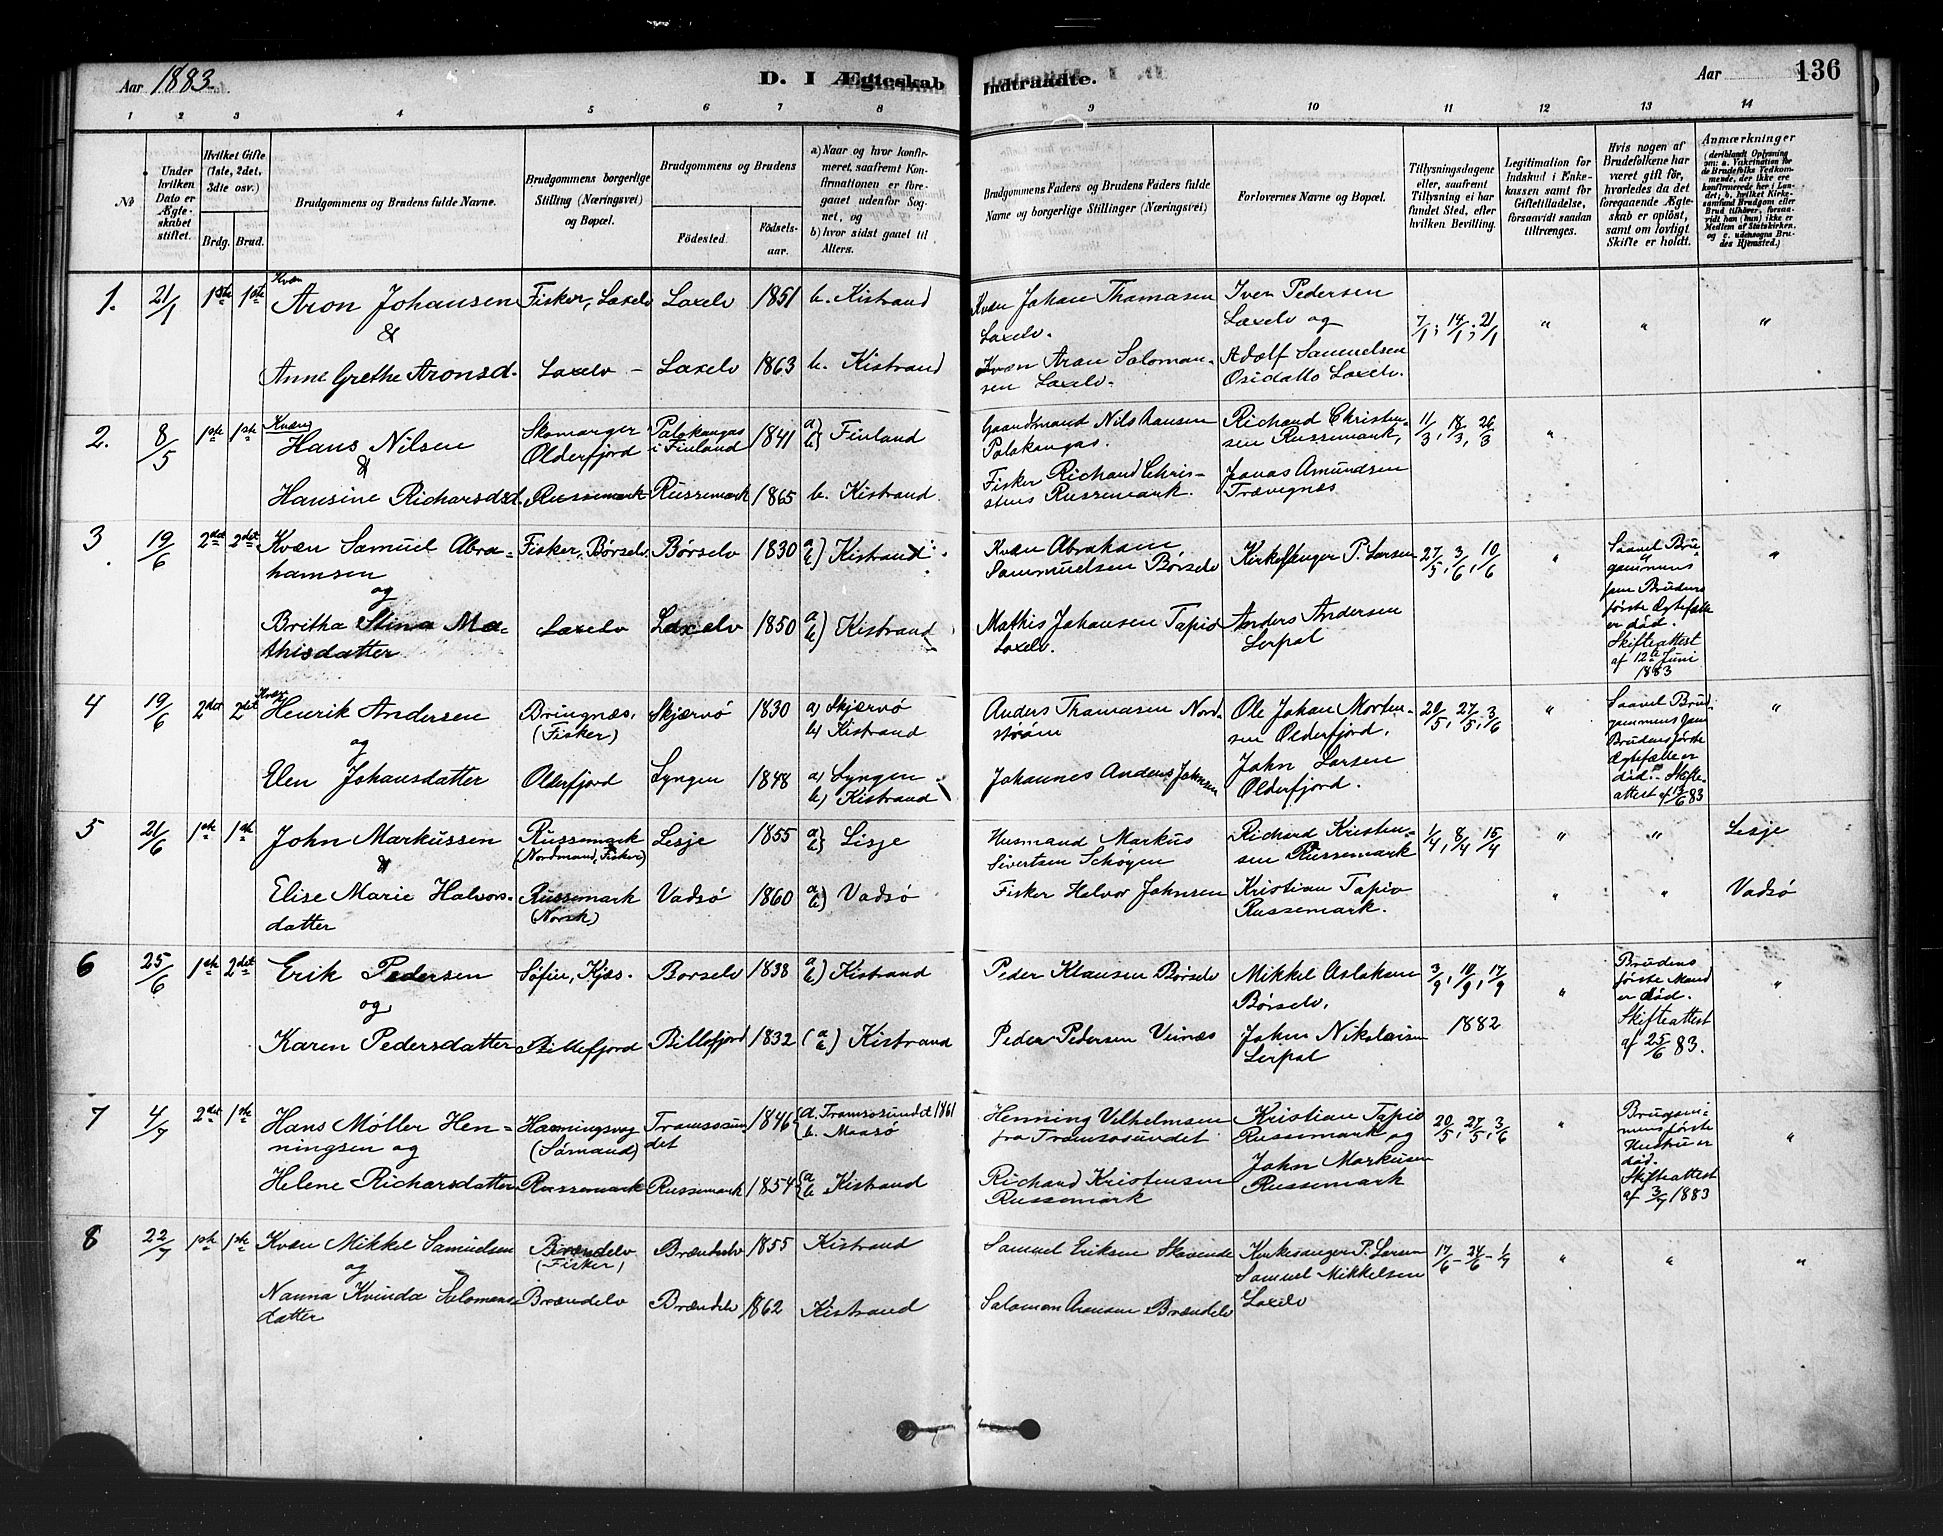 Aar 1883.
D. I Ægteskab Indtraadte.
Aar 136
1 2 3 4 5 6 7 8 9 10 11 12 13 14
No
Under hvilken Dato er Ægteskabet stiftet.
Hvilket Gifte (1ste, 2det, 3dte osv.)
Brdg. Brud.
Brudgommens og Brudens fulde Navne.
Brudgommens borgerlige Stilling (Næringsvei) og Bopæl.
Brudgommens og Brudens
Fødested.
Fødselsaar.
a) Naar og hvor konfirmeret, saafremt Konfirmationen er foregaaet udenfor Sognet, og
b) hvor sidst gaaet til Alters.
Brudgommens Faders og Brudens Faders fulde Navne og borgerlige Stillinger (Næringsvei)
Forlovernes Navne og Bopæl.
Tillysningsdagene eller, saafremt Tillysning ei har fundet Sted, efter hvilken Bevilling.
Legitimation for Indskud i Enkekassen samt for Giftetilladelse, forsaavidt saadan tiltrænges.
Hvis nogen af Brudefolkene har været gift før, hvorledes da det foregaaende Ægteskab er opløst, samt om lovligt Skifte er holdt.
Anmærkninger (deriblandt Oplysning om: a. Vakcination for de Brudefolks Vedkommende, der ikke ere konfirmerede her i Landet, b. hvilket Kirkesamfund Brudgom eller Brud tilhører, forsaavidt han (hun) ikke er Medlem af Statskirken, og c. udensogns Brudes Hjemsted.)
1. 21/1 1ste 1ste Kvæn Aron Johansen Fisker, Laxelv Laxelv 1851 b. Kistrand Kvæn Johan Thomasen Laxelv. Iver Pedersen Laxelv og 7/1; 14/1; 21/1 " " "
&
Anne Grethe Aronsd. Laxelv - Laxelv 1863 b. Kistrand Kvæn Aron Salomonsen Laxelv. Adolf Samuelsen Osidatto Laxelv.
2. 8/5 1ste 1ste Kvæn Hans Nilsen Skomager Olderfjord Palokangas i Finland 1841 a) b) Finland Gaardmand Nils Hansen Palokangas. Richard Christensen Russemark, 11/3, 18/3, 26/3 "
&
Hansine Richarsdsd. Russemark Russemark 1865 b. Kistrand. Fisker Richard Christens Russemark. Jonas Amundsen Trævignæs
3. 19/6 2det 2det Kvæn Samuel Abrahamsen Fisker, Børselv Børselv 1830 a) b) Kistrand. Kvæn Abraham Sammuelsen Børselv Kirkesanger P. Larsen 27/5, 3/6, 10/6 " Saavel Brugommens som Brudens første Ægtefælle er død. Skifteattest af 12te Juni 1883 "
og
Britha Stina Mathisdatter Laxelv Laxelv 1850 a) b) Kistrand Mathis Johansen Tapio Laxelv. Anders Andersen Lerpol
4 19/6 2det 2det Kvæn Henrik Andersen Bringnæs, (Fisker) Skjærvø 1830 a) Skjærvø b) Kistrand Anders Thomasen Nordstrøm Ole Johan Mortensen Olderfjord. 20/5, 27/5, 3/6 " Saavel Brudgommens som Brudens første Ægtefælle er død. Skifteattest af 13/6 83 "
og
Elen Johansdatter Olderfjord Lyngen 1848 a) Lyngen b) Kistrand Johannes Anders Johnsen John Larsen Olderfjord.
5 21/6 1ste 1ste John Markussen Russemark (Nordmand, Fisker) Lesje 1855 a) b) Lisje Husmand Markus Sivertsen Schøyen Richard Kristensen Russemark 1/4, 8/4, 15/4 " " Lesje
&
Elise Marie Halvorsdatter Russemark (Norsk) Vadsø 1860 a) b) Vadsø Fisker Halvor Johnsen Kristian Tapio Russemark. " " Vadsø
6 25/6 1ste 2det Erik Pedersen Søfin, Kjæs Borselv 1838 a) b) Kistrand Peder Klausen Børselv Mikkel Aslaksen Børselv, 3/9, 10/9, 17/9 1882 " Brudens første Mand er død. Skifteattest af 25/6 83. "
og
Karen Pedersdatter Billefjord Billefjord 1832 (a) b) Kistrand Peder Pedersen Veinæs John Nikolaisen Lerpol
7 4/7 2det 1ste Hans Møller Henningsen og Honningsvog (Sømand) Tromsosundet 1846 a. Tromsosundet 1861 b. Maasø Henning Vilhelmsen fra Tromsosundet Kristian Tapio Russemark og 20/5, 27/5, 3/6 " Brugommens første Hustru er død. Skifteattest af 3/7 1883 "
Helene Richarsdatter Russemark Russemark 1854 (a b Kistrand Richard Kristensen Russemark John Markusen Russemark
8 22/7 1ste 1ste Kvæn Mikkel Samuelsen Brændelv (Fisker) Brændelv 1855 Kistrand Samuel Eriksen Kirkesanger P. Larsen 17/6 - 24/6 - 1/7 " " "
og
Nanna Kvinda Salomonsdatter Brændelv Brændelv 1862 Kistrand Salomon Aronsen Brændelv Samuel Mikkelsen Laxelv